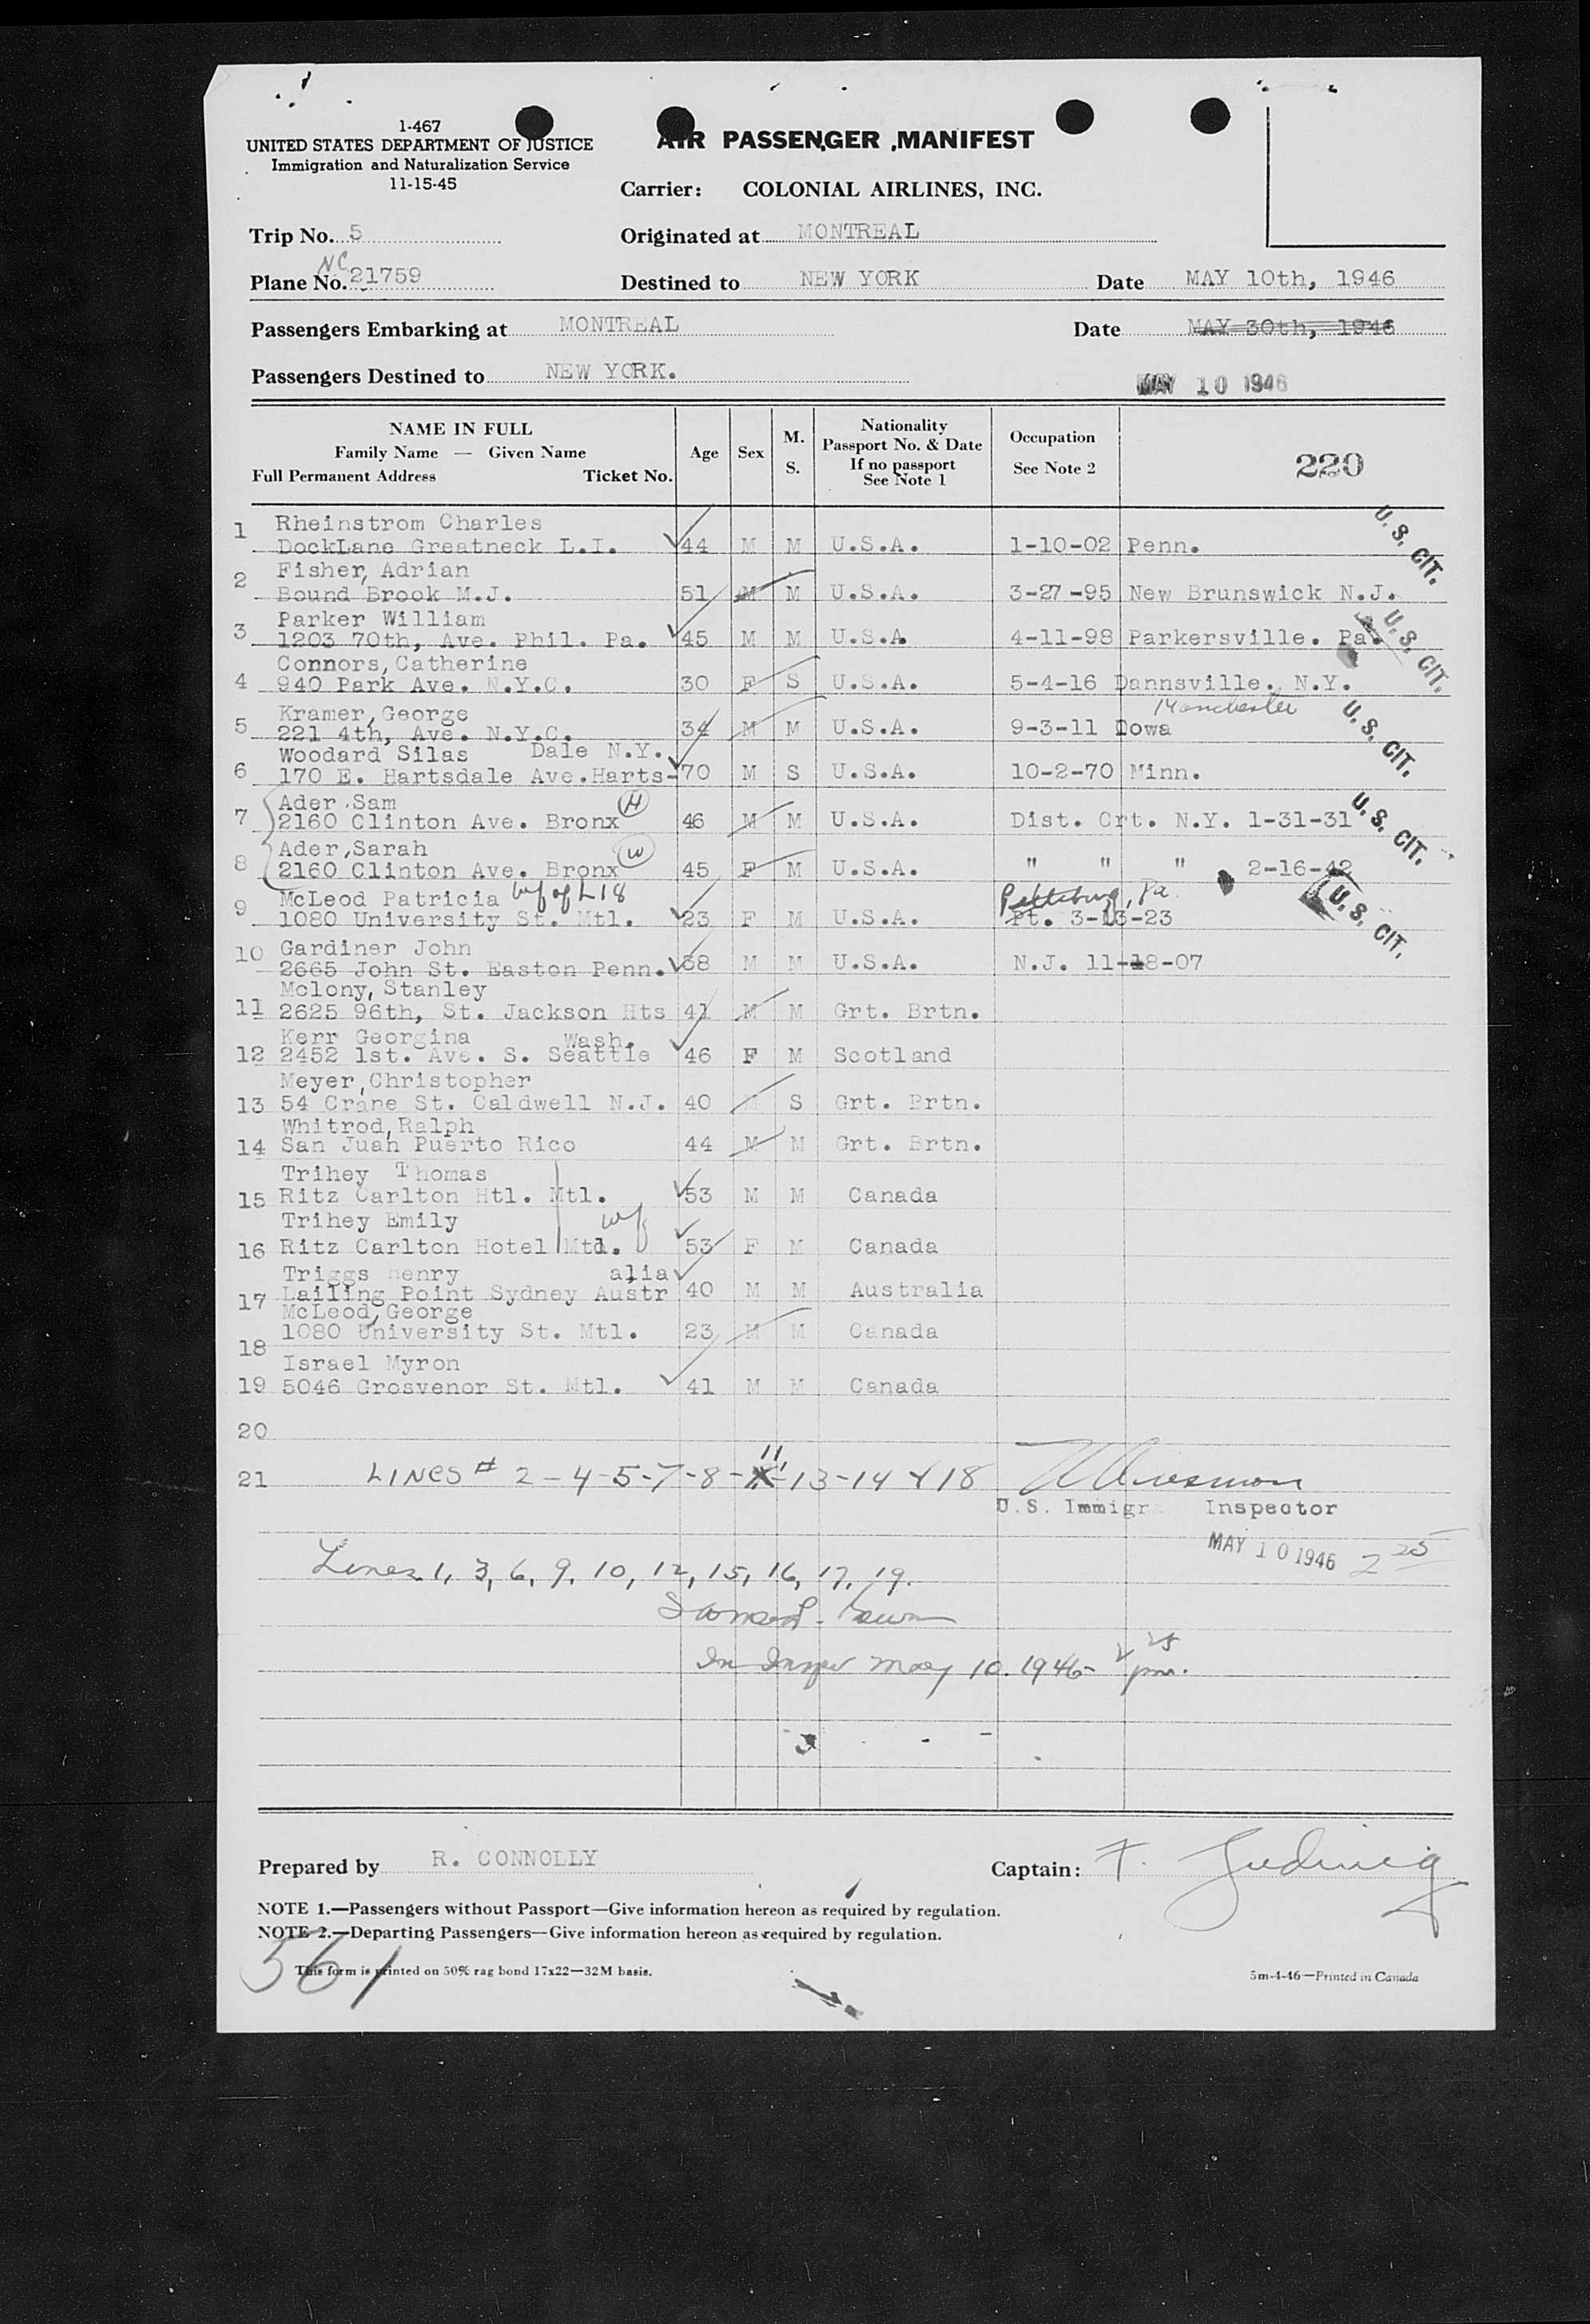 1-467
UNITED STATES DEPARTMENT OF JUSTICE
Immigration and Naturalization Service
11-15-45
AIR PASSENGER MANIFEST
Carrier: COLONIAL AIRLINES, INC.
Trip No. 5
Originated at MONTREAL
Plane No. NC 21759
Destined to NEW YORK Date MAY 10th, 1946
Passengers Embarking at MONTREAL Date MAY 30th, 1946
Passengers Destined to NEW YORK. MAY 10 1946
NAME IN FULL
Family Name — Given Name
Full Permanent Address Ticket No.
Age
Sex
M. S.
Nationality
Passport No. & Date
If no passport
See Note 1
Occupation
See Note 2
220
1 Rheinstrom Charles
DockLane Greatneck L.I. 44 M M U.S.A. 1-10-02 Penn. U.S. CIT.
2 Fisher, Adrian
Bound Brook M.J. 51 M M U.S.A. 3-27-95 New Brunswick N.J.
3 Parker William
1203 70th, Ave. Phil. Pa. 45 M M U.S.A. 4-11-98 Parkersville. Pa. U.S. CIT.
4 Connors, Catherine
940 Park Ave. N.Y.C. 30 F S U.S.A. 5-4-16 Dannsville. N.Y.
5 Kramer, George Manchester
221 4th, Ave. N.Y.C. 34 M M U.S.A. 9-3-11 Iowa U.S. CIT.
6 Woodard Silas Dale N.Y.
170 E. Hartsdale Ave.Harts- 70 M S U.S.A. 10-2-70 Minn.
7 Ader, Sam H
2160 Clinton Ave. Bronx 46 M M U.S.A. Dist. Crt. N.Y. 1-31-31 U.S. CIT.
8 Ader, Sarah W
2160 Clinton Ave. Bronx 45 F M U.S.A. " " " 2-16-42
9 McLeod Patricia wf of L18 Pittsburg, Pa
1080 University St. Mtl. 23 F M U.S.A. Pt. 3-13-23 U.S. CIT.
10 Gardiner John
2665 John St. Easton Penn. 38 M M U.S.A. N.J. 11-18-07
11 Mclony, Stanley
2625 96th, St. Jackson Hts 41 M M Grt. Brtn.
12 Kerr Georgina Wash.
2452 1st. Ave. S. Seattle 46 F M Scotland
13 Meyer, Christopher
54 Crane St. Caldwell N.J. 40 S Grt. Brtn.
14 Whitrod, Ralph
San Juan Puerto Rico 44 M M Grt. Brtn.
15 Trihey Thomas
Ritz Carlton Htl. Mtl. 53 M M Canada
16 Trihey Emily wf
Ritz Carlton Hotel Mtl. 53 F M Canada
17 Triggs Henry alia
Lailing Point Sydney Austr 40 M M Australia
18 McLeod, George
1080 University St. Mtl. 23 M M Canada
19 Israel Myron
5046 Grosvenor St. Mtl. 41 M M Canada
20
21 LINES # 2-4-5-7-8-11-13-14 & 18
U.S. Immigr Inspector
MAY 10 1946 2 25
Lines 1, 3, 6, 9, 10, 12, 15, 16, 17, 19.
May 10. 1946- 2 25 pm.
Prepared by R. CONNOLLY
Captain: F. Ludwig
NOTE 1.—Passengers without Passport—Give information hereon as required by regulation.
NOTE 2.—Departing Passengers—Give information hereon as required by regulation.
561
This form is printed on 50% rag bond 17x22—32M basis.
5m-4-46—Printed in Canada